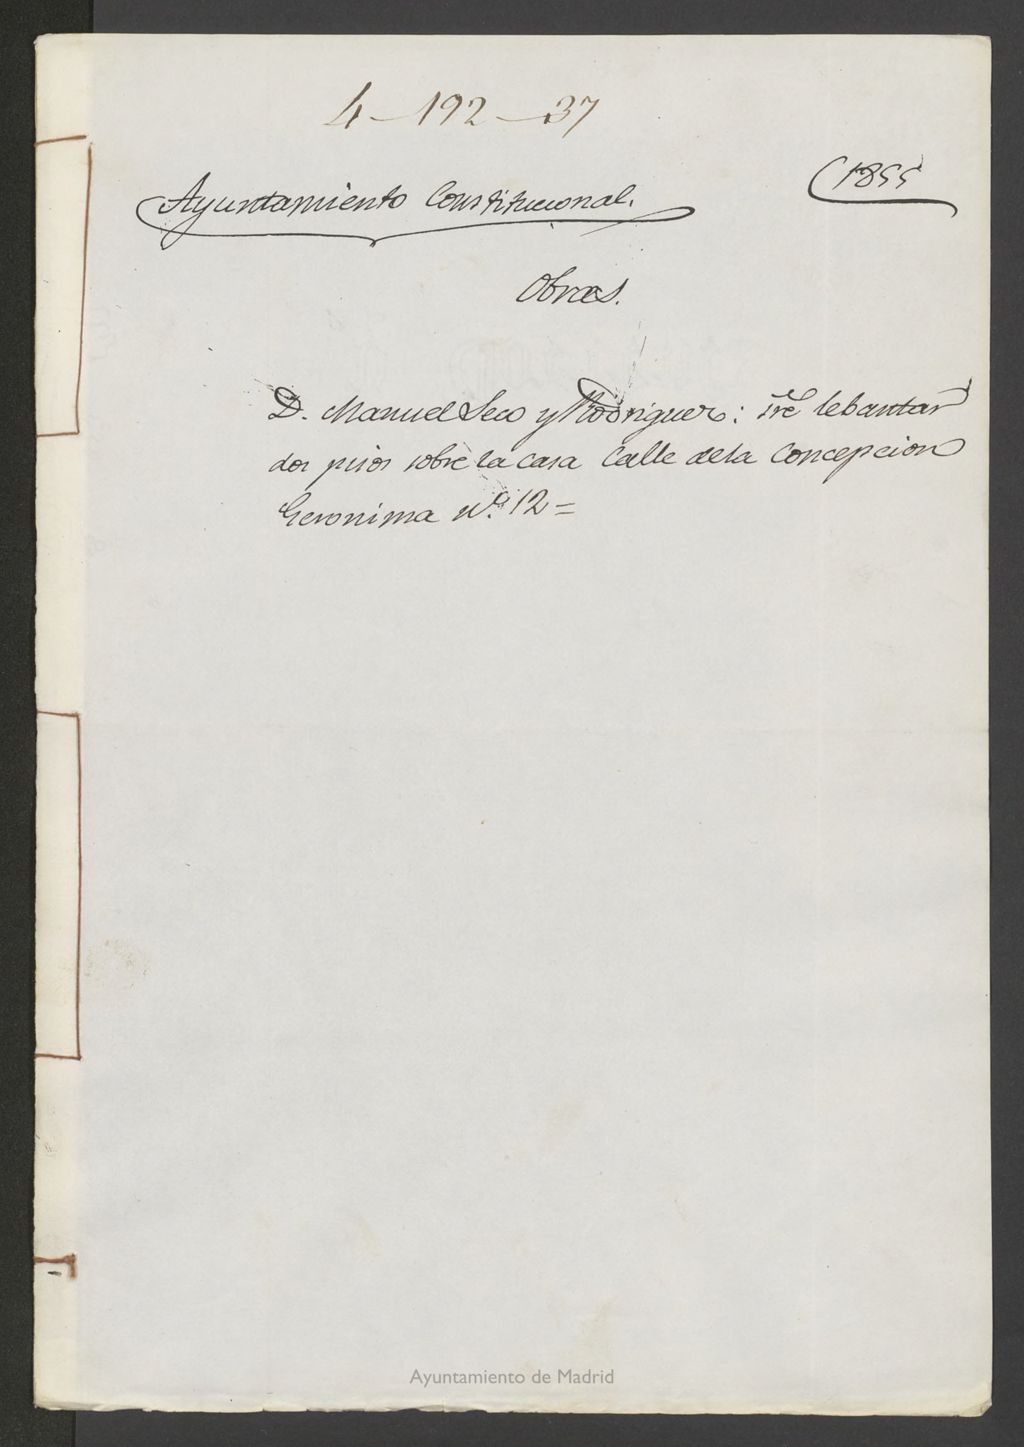 4-192-37
1855
Ayuntamiento Constitucional.
Obras.
D. Manuel Seco y Rodriguez: sre lebantar
dos pisos sobre la casa Calle de la Concepcion
Geronima nº. 12 =
Ayuntamiento de Madrid